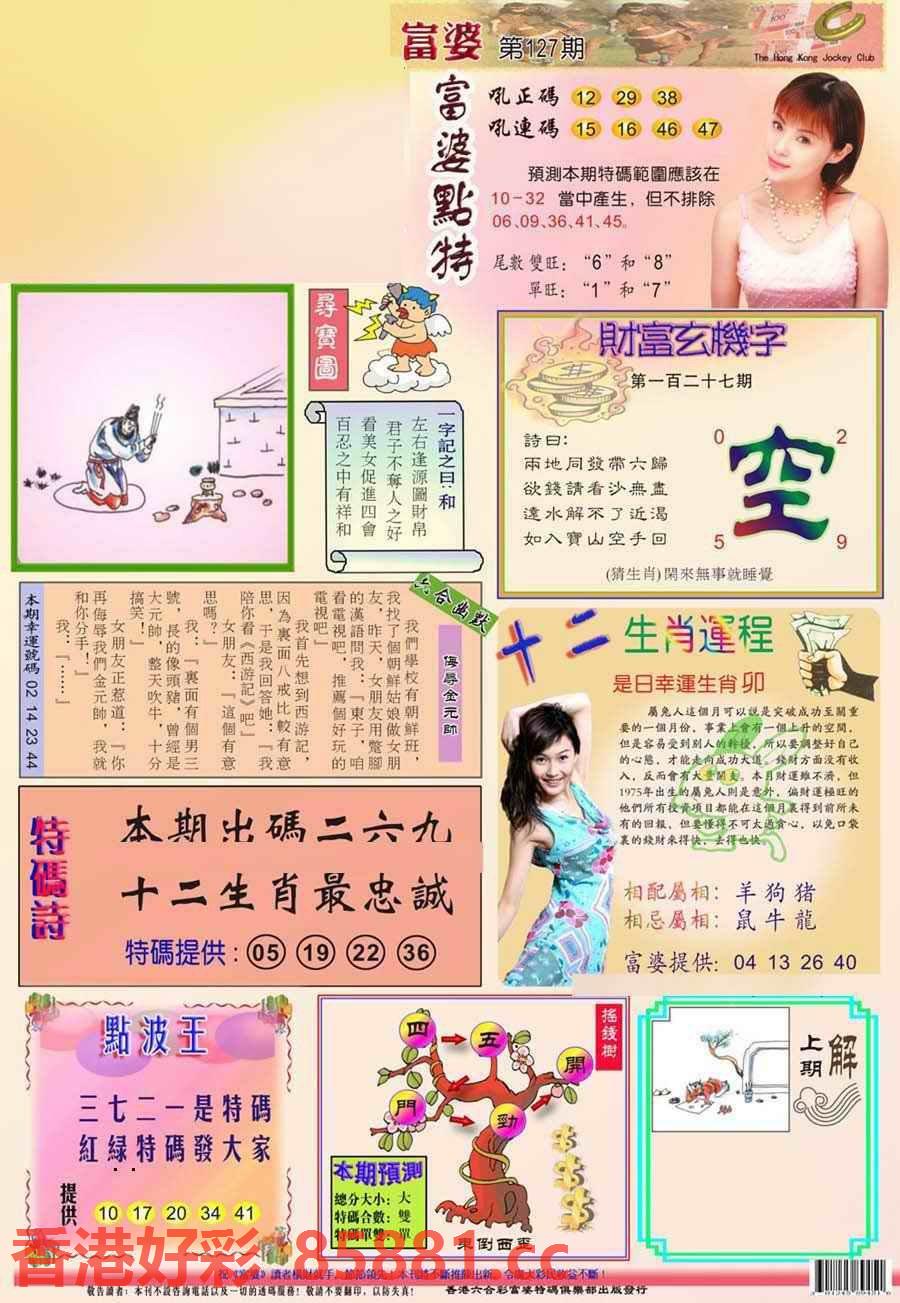 富婆 第127期
The Hong Kong Jockey Club
富婆點特
吼正碼 12 29 38
吼連碼 15 16 46 47
預測本期特碼範圍應該在
10-32 當中產生，但不排除
06、09、36、41、45。
尾數雙旺：“6”和“8”
單旺：“1”和“7”
尋寶圖
一字記之曰：和
左右逢源圖財帛
君子不奪人之好
看美女促進四會
百忍之中有祥和
財富玄機字
第一百二十七期
詩曰：
兩地同發帶六歸
欲錢請看沙無盡
遠水解不了近渴
如入寶山空手回
0 2
空
5 9
(猜生肖)閑來無事就睡覺
六合幽默
侮辱金元帥
我們學校有朝鮮班，
我找了個朝鮮姑娘做女朋
友，昨天，女朋友用蹩腳
的漢語問我：『東子，咱
看電視吧，推薦個好玩的
電視吧』
我首先想到西游記，
因為裏面八戒比較有意
思，于是我回答她：『我
陪你看《西游記》吧』
女朋友：『這個有意
思嗎？』
我：『裏面有個男三
號，長的像頭豬，曾經是
大元帥，整天吹牛，十分
搞笑！』
女朋友正惹道：『你
再侮辱我們金元帥，我就
和你分手！』
我：『……』
本期幸運號碼 02 14 23 44
十二生肖運程
是日幸運生肖 卯
屬兔人這個月可以說是突破成功至關重
要的一個月份，事業上會有一個上升的空間，
但是容易受到別人的幹擾，所以要調整好自己
的心態，才能走向成功大道。錢財方面没有收
入，反而會有大量開支。本月財運雖不濟，但
1975年出生的屬兔人則是意外，偏財運極旺的
他們所有投資項目都能在這個月裏得到前所未
有的回報，但要懂得不可太過貪心，以免口袋
裏的錢財來得快，去得也快。
相配屬相：羊狗豬
相忌屬相：鼠牛龍
富婆提供：04 13 26 40
特碼詩
本期出碼二六九
十二生肖最忠誠
特碼提供：05 19 22 36
點波王
三七二一是特碼
紅緑特碼發大家
提供 10 17 20 34 41
搖錢樹
四 五 開
門 勁
本期預測
總分大小：大
特碼合數：雙
特碼單雙：單
東倒西歪
上期 解
香港好彩 85881.cc
敬告讀者：本刊不設咨詢電話以及一切的透碼活動！敬請不要翻印，以防失真！
香港六合彩富婆特碼俱樂部出版發行